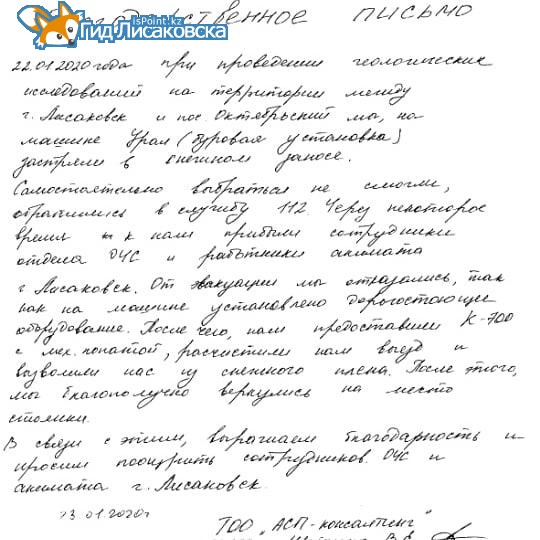 IsPoint.kz
Гид Лисаковска
ПИСЬМО
22.01.2020 года при проведении геологических
исследований на территории между
г. Лисаковск и пос. Октябрьский мы, на
машине Урал (буровая установка)
застряли в снежном заносе.
Самостоятельно выбраться не смогли,
обратились в службу 112. Через некоторое
время к нам прибыли сотрудники
отдела ОЧС и работники акимата
г Лисаковск. От эвакуации мы отказались, так
как на машине установлено дорогостоющее
оборудование. После чего, нам предоставили К-700
с мех. лопатой, расчистили нам выезд и
вызволили нас из снежного плена. После этого,
мы благополучно вернулись на место
стоянки.
В связи с этим, выражаем благодарность и
просим поощрить сотрудников ОЧС и
акимата г. Лисаковск.
23.01.2020г
ТОО "АСП-консалтинг"